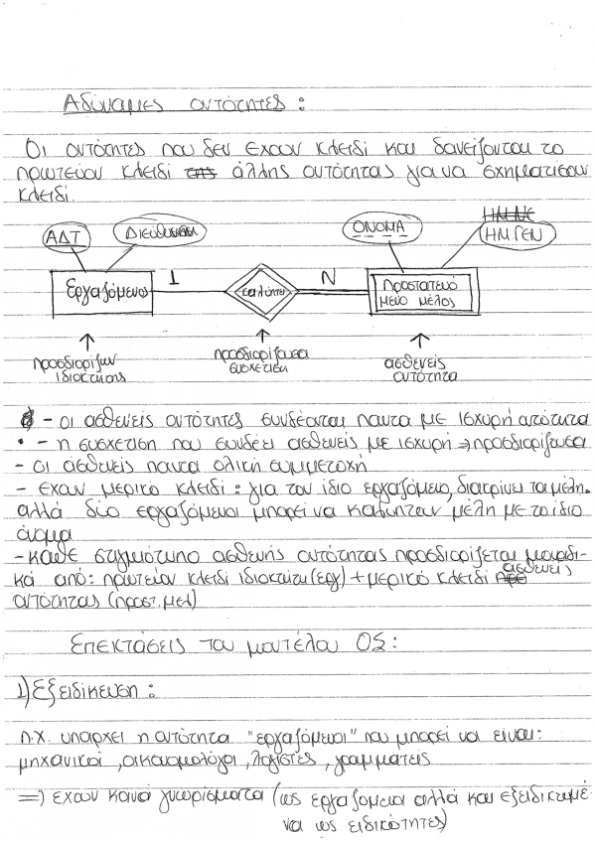 Αδύναμες οντότητες :
Οι οντότητες που δεν εχουν κλειδί και δανείζονται το
πρωτεύον κλειδί της άλλης οντότητας για να σχηματίσουν
κλειδί.
ΑΔΤ
Διεύθυνση
ΟΝΟΜΑ
ΗΜ ΓΕΝ
Εργαζόμενος
1
καλύπτει
Ν
Προστατευό
μενο μέλος
προσδιορίζων
ιδιοκτήτης
προσδιορίζουσα
συσχέτιση
ασθενείς
οντότητα
- οι ασθενείς οντότητες συνδέονται παντα με ισχυρή οντότητα
- η συσχετιση που συνδέει ασθενείς με ισχυρή => προσδιορίζουσα
- οι ασθενείς παντα ολική συμμετοχή
- εχουν μερικό κλειδί : για τον ίδιο εργαζόμενο, διακρίνει τα μέλη.
αλλά δύο εργαζόμενοι μπορεί να καλύπτουν μέλη με το ίδιο
όνομα
- καθε στιγμιότυπο ασθενής οντότητας προσδιορίζεται μοναδι-
κά από: πρωτεύον κλειδί ιδιοκτήτη (εργ) + μερικό κλειδί ασθενείς
οντότητας (προστ. μελ)
Επεκτάσεις του μοντέλου ΟΣ :
1) Εξειδίκευση :
π.χ. υπαρχει η οντότητα "εργαζόμενοι" που μπορεί να ειναι:
μηχανικοί , οικονομολόγοι , λογιστές , γραμματείς
=> εχουν κοινά γνωρίσματα (ως εργαζομενοι αλλά και εξειδικευμέ-
να ως ειδικότητες)